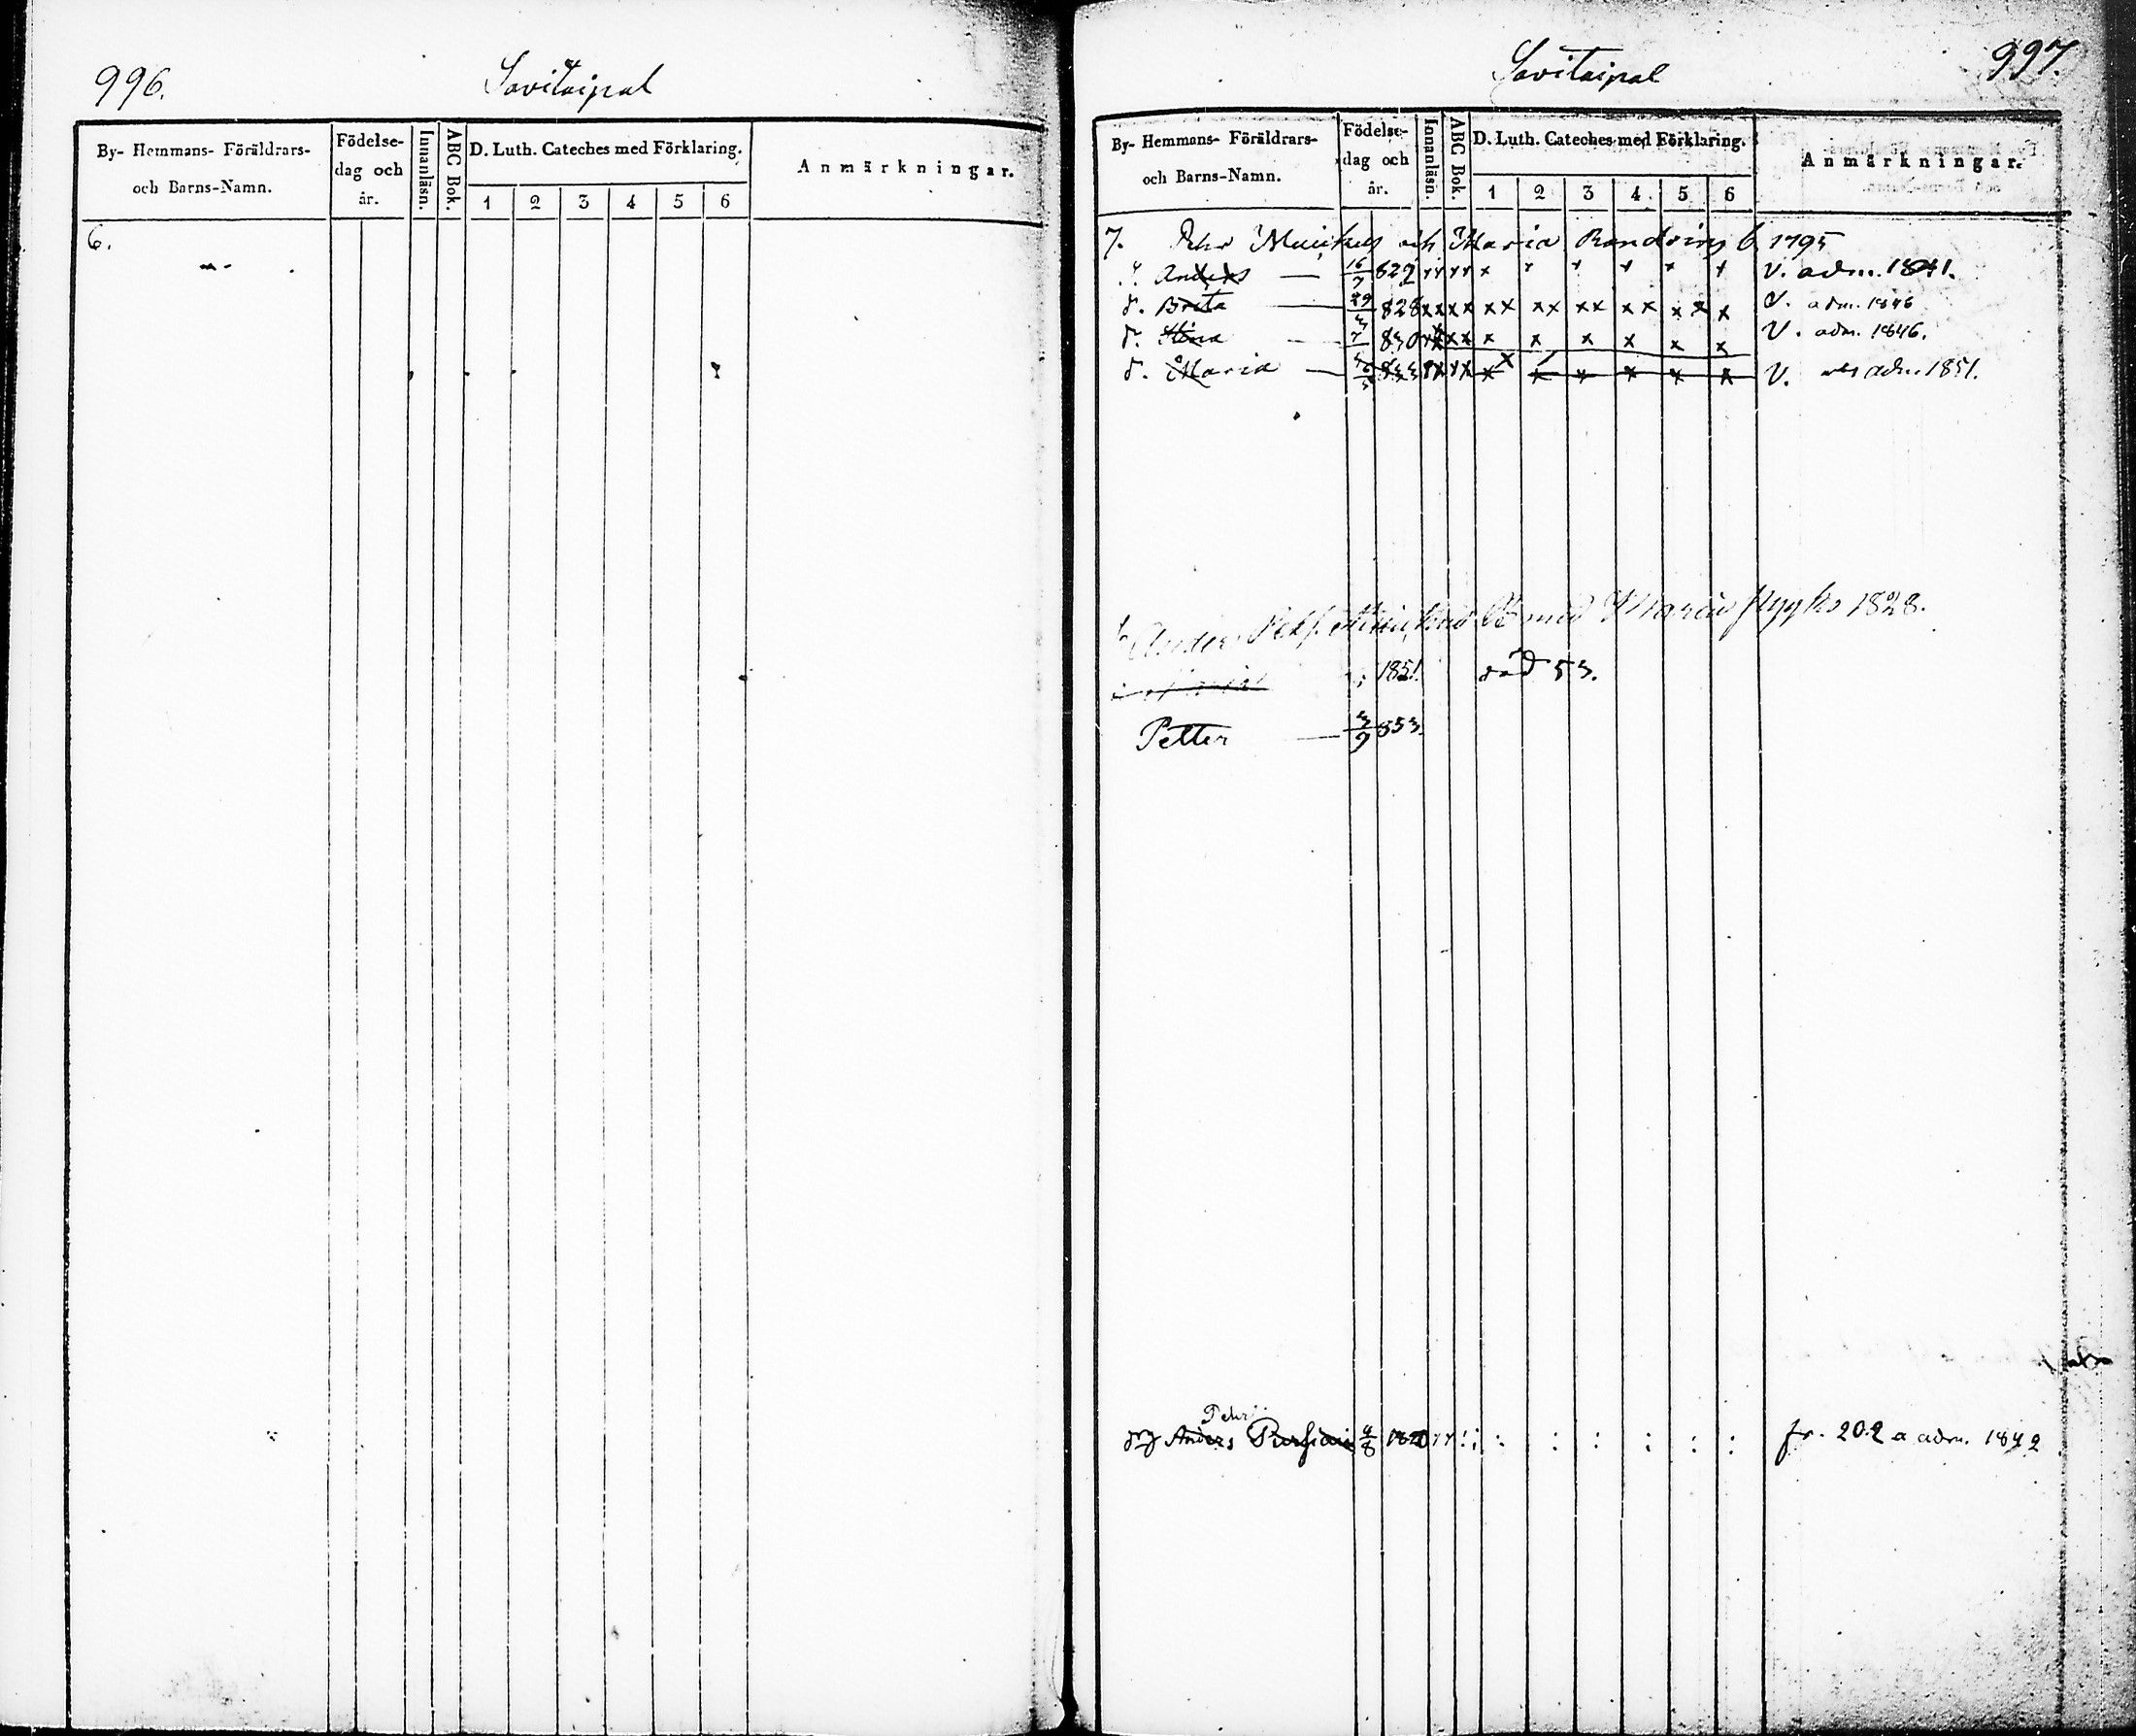 996.
Savitaipal
By- Hemmans- Föräldrars-
och Barns-Namn.
Födelse-
dag och
år.
Innanläsn.
ABC Bok.
D. Luth. Cateches med Förklaring.
1 2 3 4 5 6
Anmärkningar.
6.
Savitaipal
997.
By- Hemmans- Föräldrars-
och Barns-Namn.
Födelse-
dag och
år.
Innanläsn.
ABC Bok.
D. Luth. Cateches med Förklaring.
1 2 3 4 5 6
Anmärkningar.
7. Pehr och Maria 1795
Anders 16/7 822 x V. adm. 1841.
d. Brita 828 xx xx xx xx xx xx xx x V. adm. 1846
d. Stina 830 xx x x x x x x V. adm. 1846.
d. Maria 833 x x x x x x V. adm. 1851.
Anders med Maria 1828.
1851. död 53.
Petter 3/9 853.
Pehr
Anders 4/8 1820 fr. 202 a adm. 1842